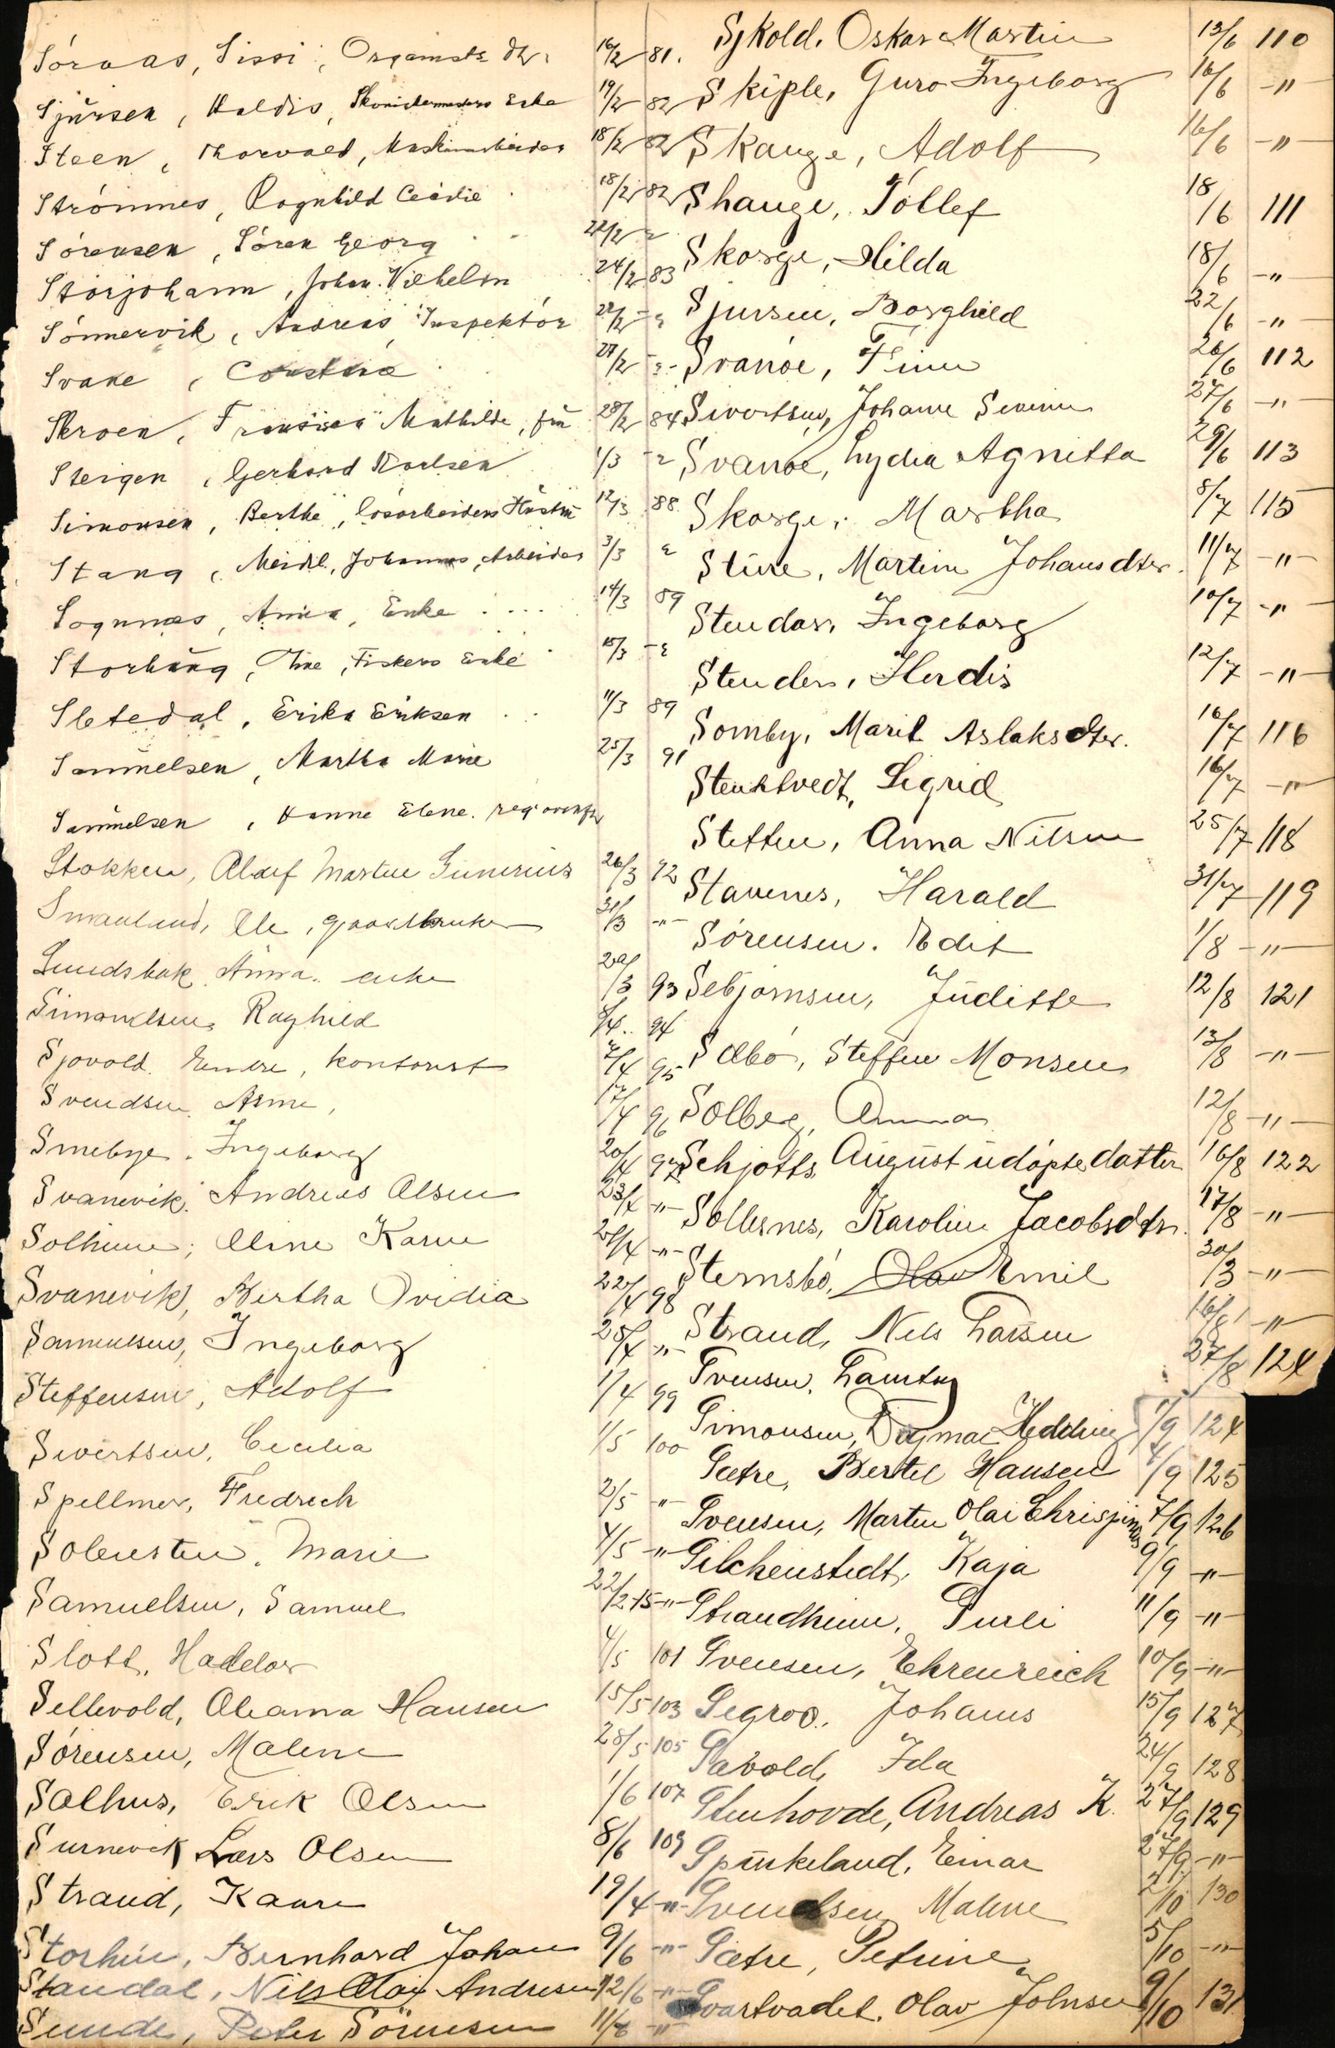 Söraas, Sissi, Organists dtr. 16/2 81.
Sjürsen, Haldis, Skomakermesters Enke 19/2 82
Steen, Thorvald, Maskinarbeider 18/2 82
Strömnes, Ragnhild Cecilie 18/2 82
Sörensen, Sören Georg 22/2 "
Storjohann, Johan Vilhelm 24/2 83
Sönnervik, Andreas Inspektör 22/2 - "
Svane, 27/2 - "
Skroen, Mathilde, frü 28/2 84
Steigen, Gerhard Karlsen 1/3 - "
Simonsen, Berthe, Lösarbeiders Hüstrü 12/3 88
Stang, Meidl, Johannes, Arbeider 3/3 "
Sognnæs, Anna, Enke 14/3 89
Storhaüg, Oline, Fiskers Enke 15/3 - "
Sletedal, Erika Eriksen 11/3 89
Samüelsen, Martha Marie 25/3 91
Samüelsen, Hanne Elene.
Stokken, Olaif Martin Gunerius 26/3 92
Smaalund, Ole, gaardbruker 31/3 - " -
Sundsbak Anna. enke 29/3 93
Simonelsen, Raghild 94
Sjovold. Emilie, Kontorist 7/4 95
Svendsen. Arne, 17/4 96
Smebye. Ingeborg 20/4 97
Svanevik. Andreas Olsen 23/4 - " -
Solheim; Oline Karine 21/4 - " -
Svanevik, Bertha Ovidia 22/4 98
Samuelsen, Ingeborg 28/4 "
Steffensen, Adolf 1/4 99
Sivertsen, Cecilia 1/5 100
Spellmer, Fredrich 2/5 "
Solensten. Marie 4/5 "
Samuelsen, Samuel 22/2-15 - " -
Slott. Hadelar 4/5 101
Sellevold, Oleanna Hansen 15/5 103
Sörensen, Malene 28/5 105
Salhus, Erik Olsen 1/6 107
Surnevik Lars Olsen 8/6 109
Strand, Kaare 19/4 - " -
Storheim, Bernhard Johan 9/6 - " -
Standal, Nils Olai Andresen 12/6 - " -
Sunde, Peter Sörensen 11/6 - " -
Sjkold. Oskar Martin 13/6 110
Skiple, Guro Ingeborg 16/6 - " -
Skauge, Adolf 16/6 - " -
Shauge, Tollef 18/6 111
Skorge, Hilda 18/6 - " -
Sjursen, Borghild 22/6 - " -
Svanöe, Finn 26/6 112
Sivertsen, Johanne Severine 27/6 - " -
Svanöe, Lydia Agnitta 29/6 113
Skorge, Martha 8/7 115
Stüre, Martine Johansdter. 11/7 - " -
Stendar, Ingeborg 10/7 - " -
Stender, Herdis 12/7 - " -
Somby, Marit Aslaksdter. 16/7 116
Stenktvedt, Sigrid 16/7 - " -
Stetten, Anna Nilsen 25/7 118
Stavenes, Harald 31/7 119
Sørensen. Edit 1/8 - " -
Sebjornsen, Juditte 12/8 121
Sæbö, Steffen Monsen 13/8 - " -
Solberg, Anna 12/8 - " -
Schjötts August üdöpte datter 16/8 122
Sollesnes, Karoline Jacobsdtr. 17/8 - " -
Sternsbö, Olav Emil 30/3 - " -
Strand, Nils Larsen 16/8 - " -
Svensen, Lauritz 27/8 124
Simonsen, Dagmar Hedvig 1/9 124
Sætre, Bertel Hansen 4/9 125
Svensen, Martin Olai Chrispinus 7/9 126
Silchenstedt, Kaja 9/9 - " -
Strandheim, Surli 11/9 - " -
Svensen, Ehrenreich 10/9 - " -
Segroo, Johanus 15/9 127
Sævold, Ida 24/9 128
Stenhovde, Andreas K. 27/9 129
Spürkeland, Einar 27/9 - " -
Svendsen Malene 2/10 130
Sætre, Petrine 5/10 - " -
Svartvadet. Olav Johnsen 9/10 131